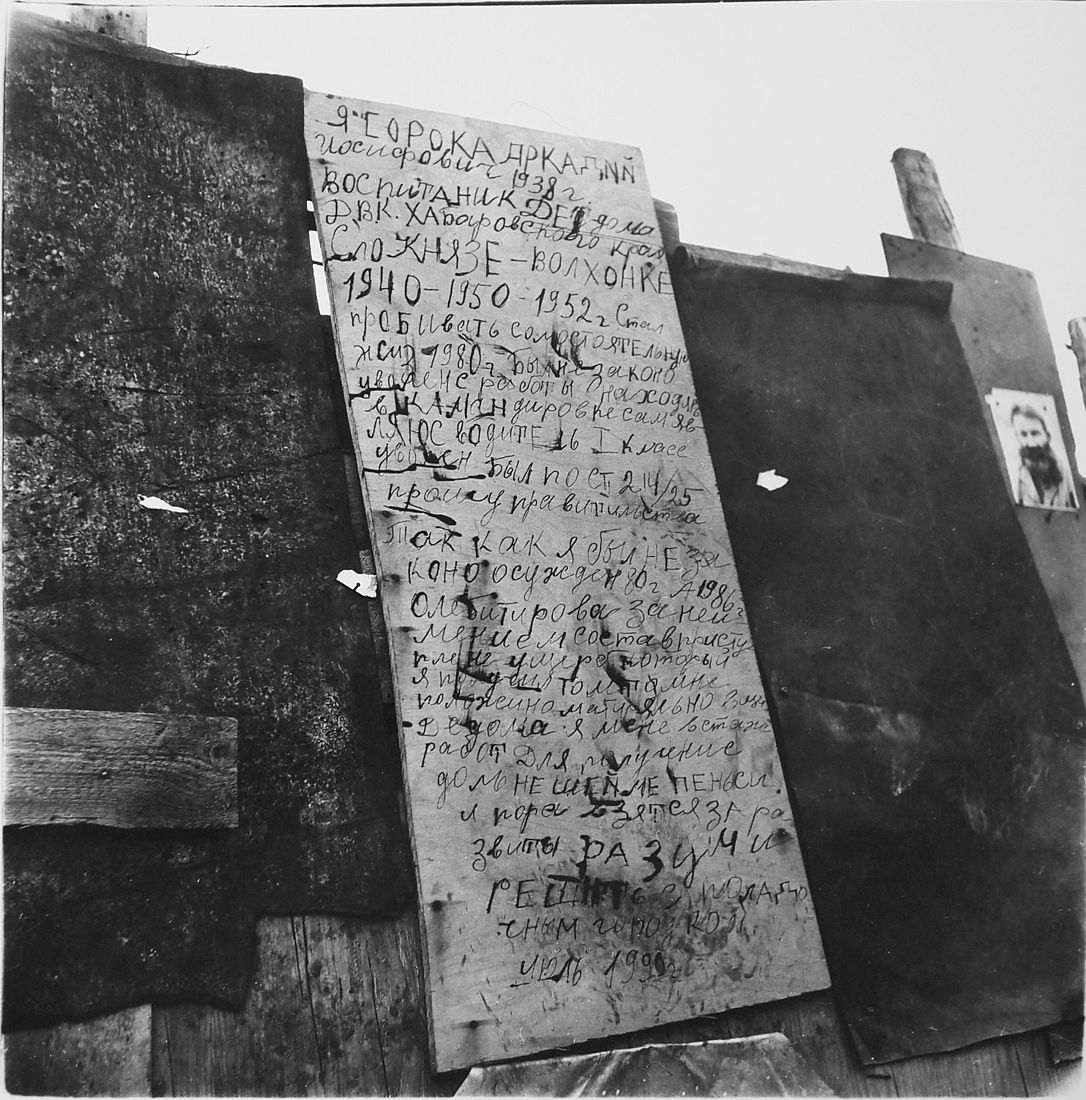 Я СОРОКА АРКАДИЙ
Иосифович 1938 г.
ВОСПИТАНИК ДЕТдома
ДВК. ХАбаровского края
СЛО КНЯЗЕ-ВОЛХОНКЕ
1940-1950-1952 г Стал
пробивать самостоятельную
жиз 1980 г был не законо
уволен с работы находясь
в КАМАНдировке сам яв
ляюс водитель I классе
уволен был по СТ 214/25
прошу правитильства
Так как я был не за
коно осужден 80г А 1986г
за неи
мением состав присту
пление ущерб который
я получил
положино матиряльно
работ Для получение
ДОЛЬНЕШЕЙМЕ ПЕНЬСИ.
и пора взятся за ра
звиты РАЗУМИ
РЕШИТЬ С ПОЛАТО
чным городком
июль 1990г